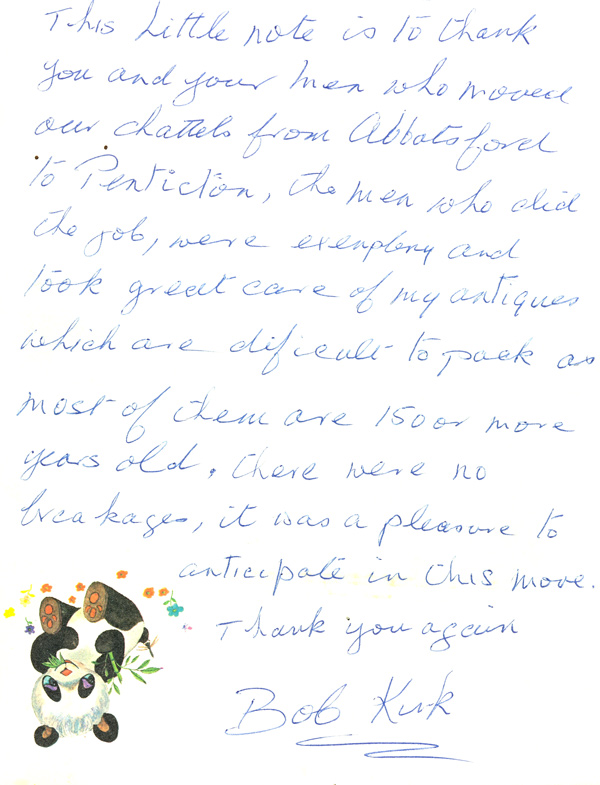 This Little note is to thank
you and your men who moved
our chattels from Abbotsford
to Penticton, the men who did
the job, were exemplary and
took great care of my antiques
which are dificult to pack as
most of them are 150 or more
years old. there were no
breakages, it was a pleasure to
anticipate in this move.
Thank you again
Bob Kirk